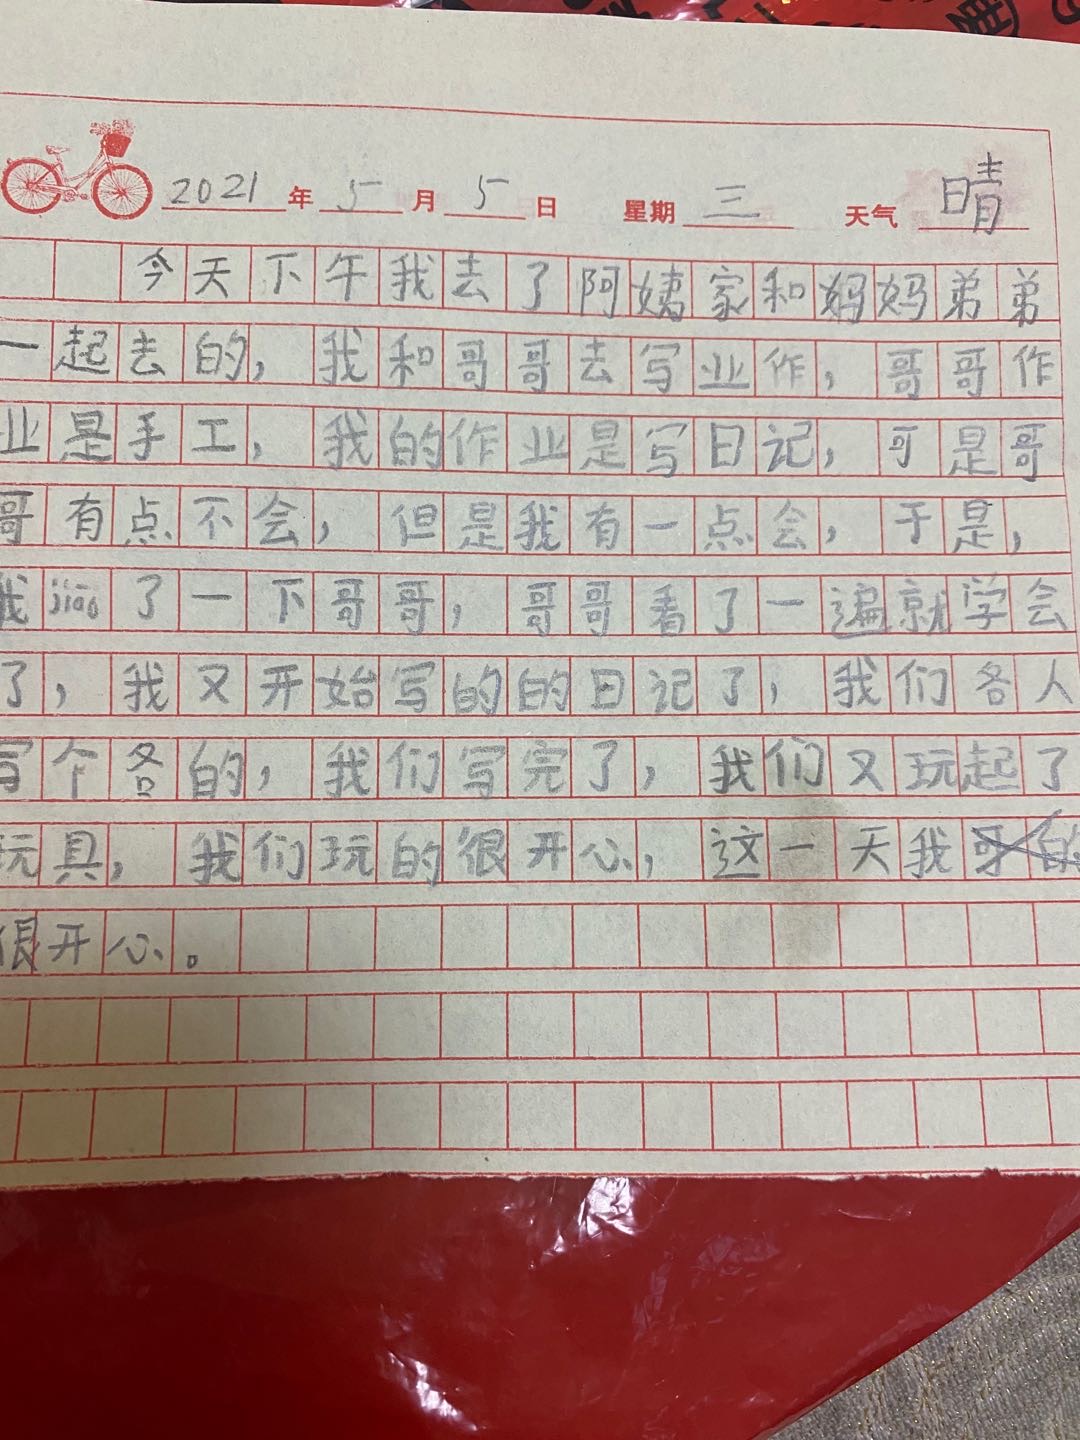 2021年5月5日 星期三 天气晴
今天下午我去了阿姨家和妈妈弟弟
一起去的，我和哥哥去写业作，哥哥作
业是手工，我的作业是写日记，可是哥
哥有点不会，但是我有一点会，于是，
我jiāo了一下哥哥，哥哥看了一遍就学会
了，我又开始写的的日记了，我们各人
写个各的，我们写完了，我们又玩起了
玩具，我们玩的很开心，这一天我
很开心。